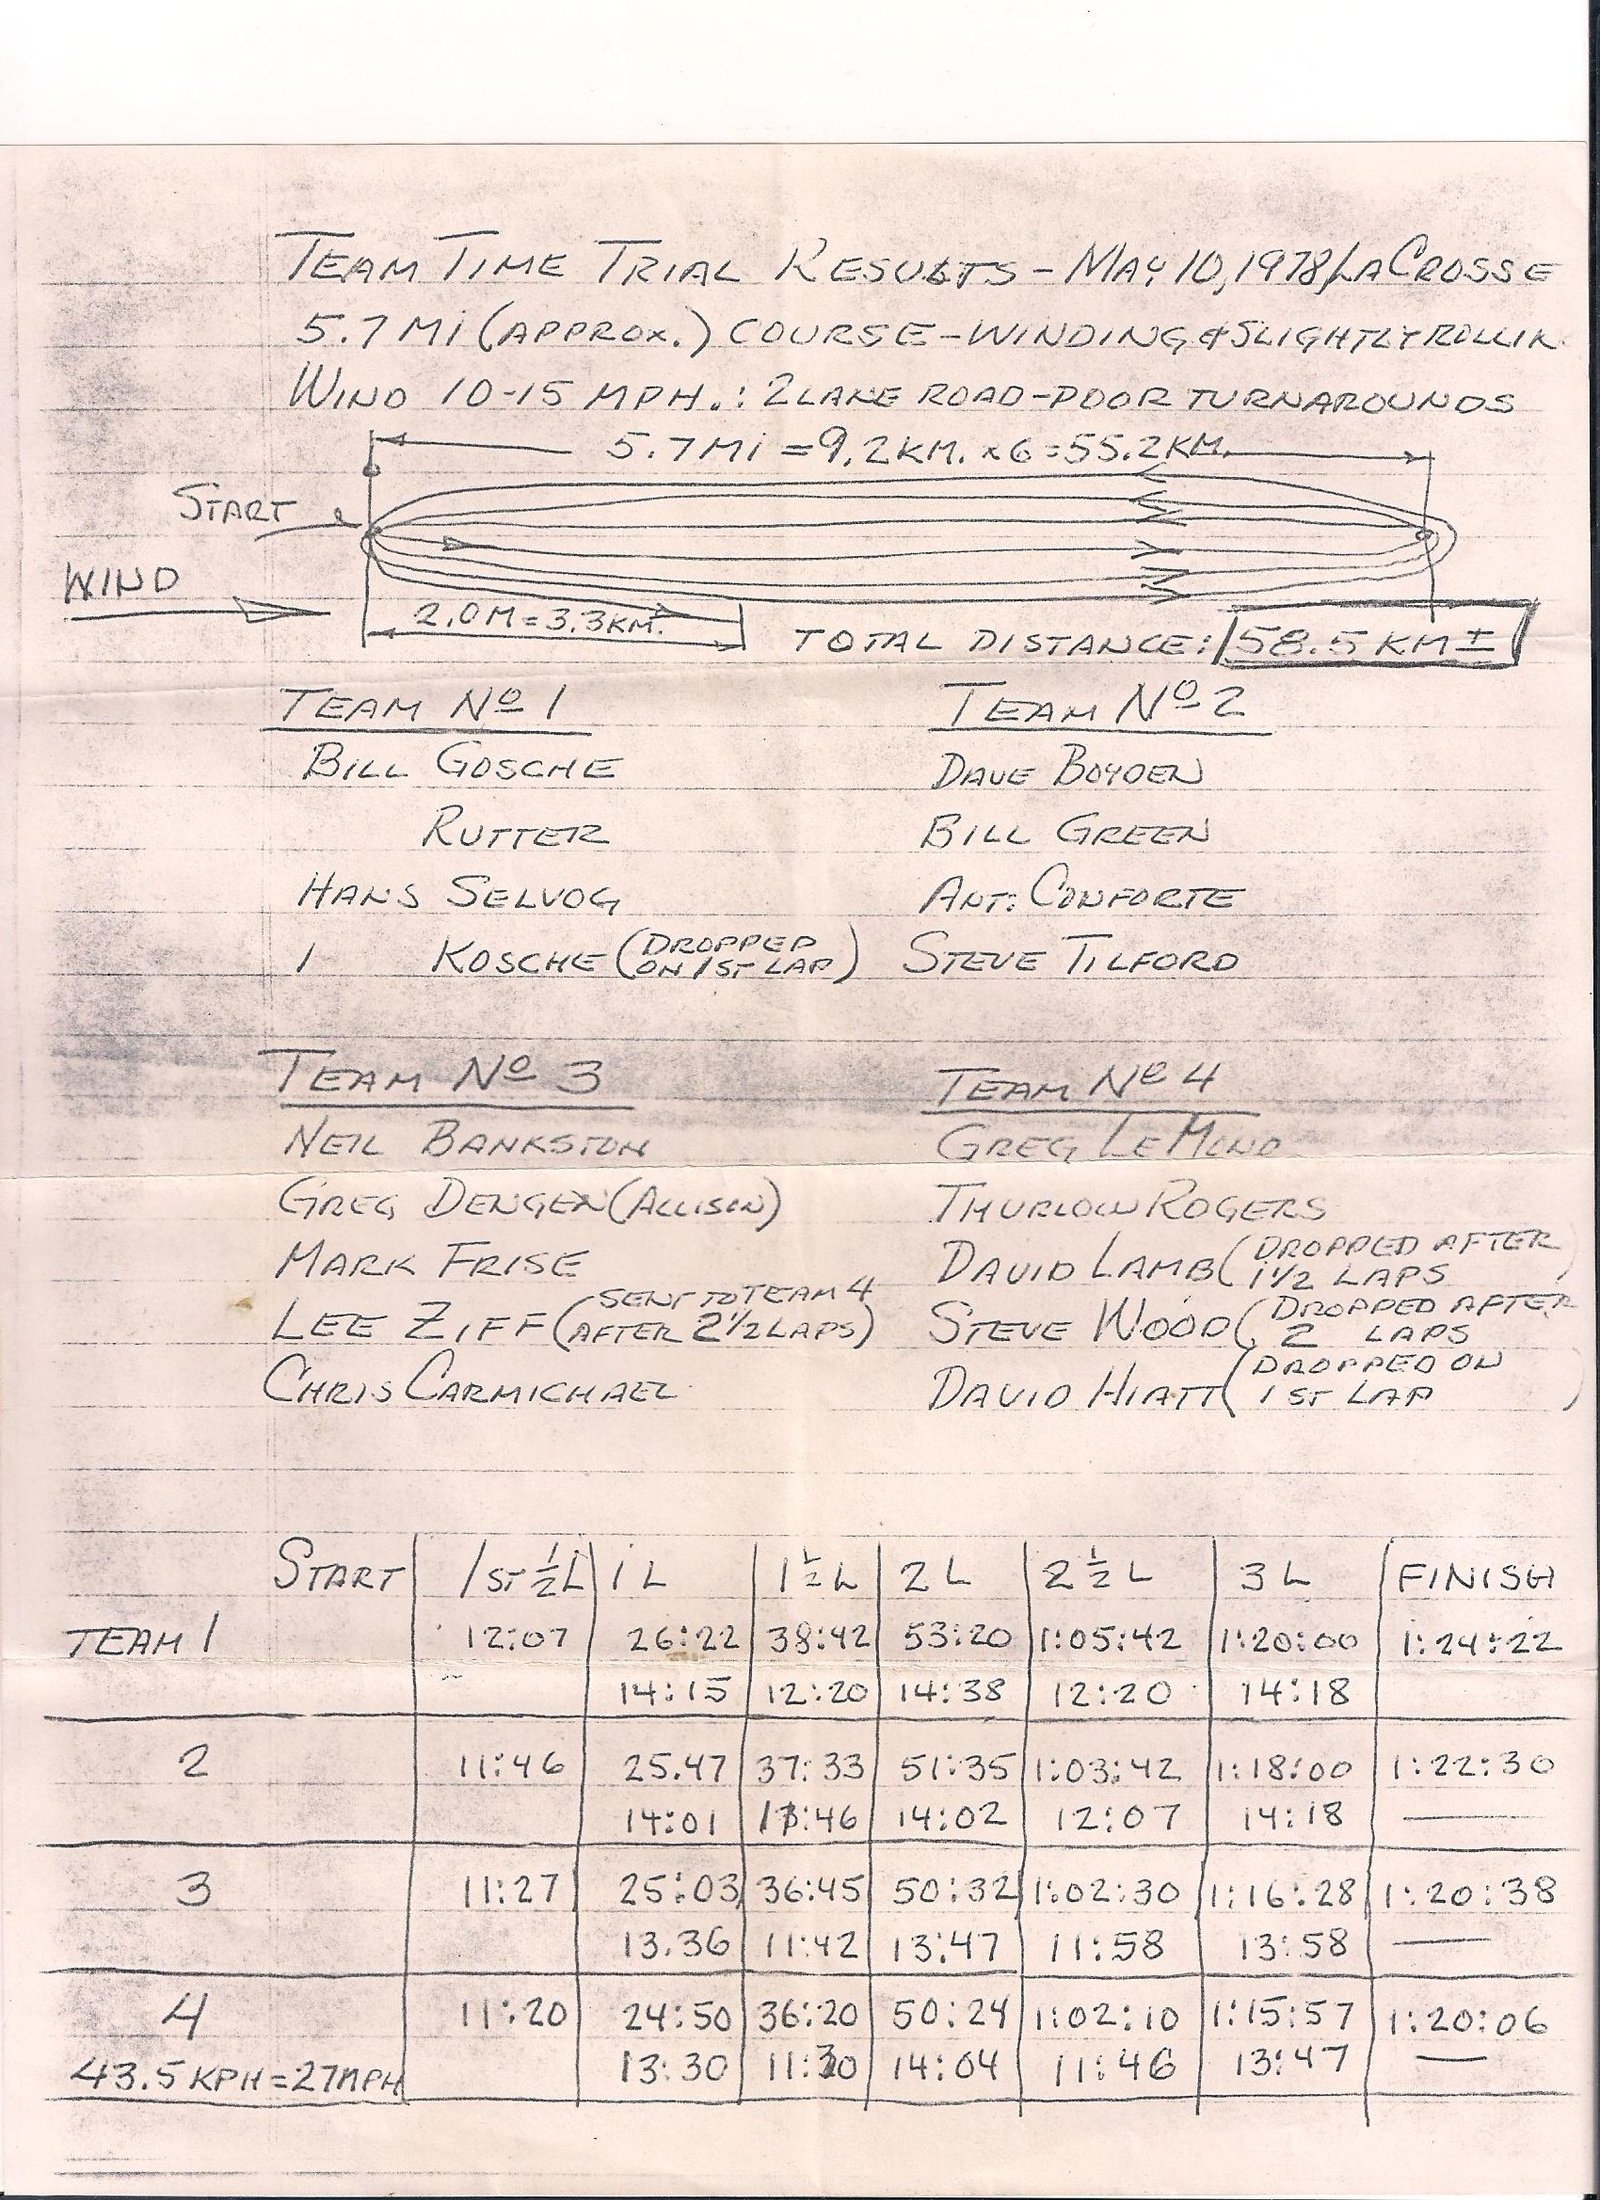 TEAM TIME TRIAL RESULTS - MAY 10, 1978/LACROSSE
5.7 MI (APPROX.) COURSE - WINDING & SLIGHTLY ROLLIN
WIND 10-15 MPH.: 2 LANE ROAD - POOR TURNAROUNDS
5.7 MI = 9.2 KM. x 6 = 55.2 KM.
START
WIND
2.0 M = 3.3 KM.
TOTAL DISTANCE: 58.5 KM ±
TEAM Nº 1 TEAM Nº 2
BILL GOSCHE DAVE BOYDEN
RUTTER BILL GREEN
HANS SELVOG ANT. CONFORTE
1 KOSCHE (DROPPED ON 1ST LAP) STEVE TILFORD
TEAM Nº 3 TEAM Nº 4
NEIL BANKSTON GREG LEMOND
GREG DENGEN (ALLISON) THURLOW ROGERS
MARK FRISE DAVID LAMB (DROPPED AFTER 1 1/2 LAPS)
LEE ZIFF (SENT TO TEAM 4 AFTER 2 1/2 LAPS) STEVE WOOD (DROPPED AFTER 2 LAPS
CHRIS CARMICHAEL DAVID HIATT (DROPPED ON 1ST LAP)
START 1ST 1/2 L 1 L 1 1/2 L 2 L 2 1/2 L 3 L FINISH
TEAM 1 12:07 26:22 38:42 53:20 1:05:42 1:20:00 1:24:22
14:15 12:20 14:38 12:20 14:18
2 11:46 25.47 37:33 51:35 1:03:42 1:18:00 1:22:30
14:01 11:46 14:02 12:07 14:18
3 11:27 25:03 36:45 50:32 1:02:30 1:16:28 1:20:38
13.36 11:42 13:47 11:58 13:58
4 11:20 24:50 36:20 50:24 1:02:10 1:15:57 1:20:06
43.5 KPH = 27 MPH 13:30 11:30 14:04 11:46 13:47